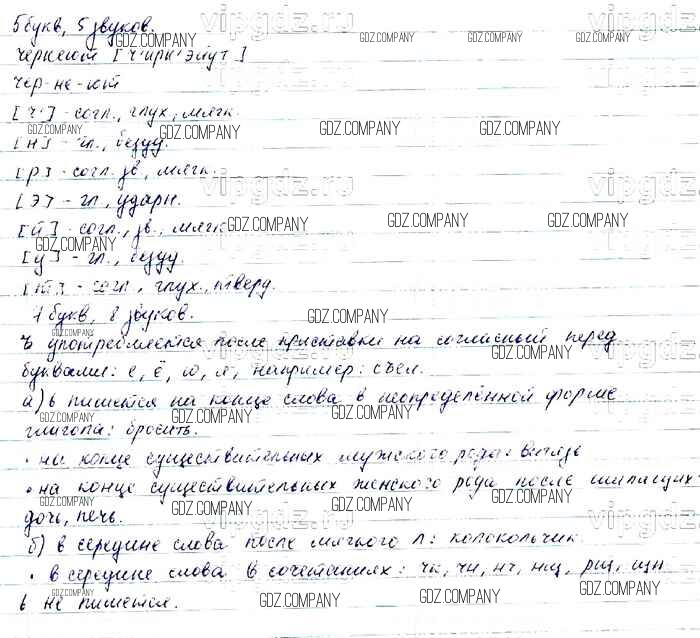 5 букв, 5 звуков.
чернеют [ч'ирн'эйут]
чер-не-ют
[ч'] - согл., глух., мягк.
[и] - гл., безуд.
[р] - согл. зв., мягк.
[э] - гл., ударн.
[й] - согл., зв., мягк.
[у] - гл., безуд.
[т] - согл., глух., тверд.
7 букв, 8 звуков.
ъ употребляется после приставки на согласный перед
буквами: е, ё, ю, я, например: съел.
а) ь пишется на конце слова в неопределённой форме
глагола: бросить.
• на конце существительных мужского рода:
• на конце существительных женского рода после шипящих:
дочь, печь.
б) в середине слова после мягкого л: колокольчик.
• в середине слова в сочетаниях: чк, чн, нч, нщ, рщ, щн
ь не пишется.
vipgdz.ru
GDZ.COMPANY